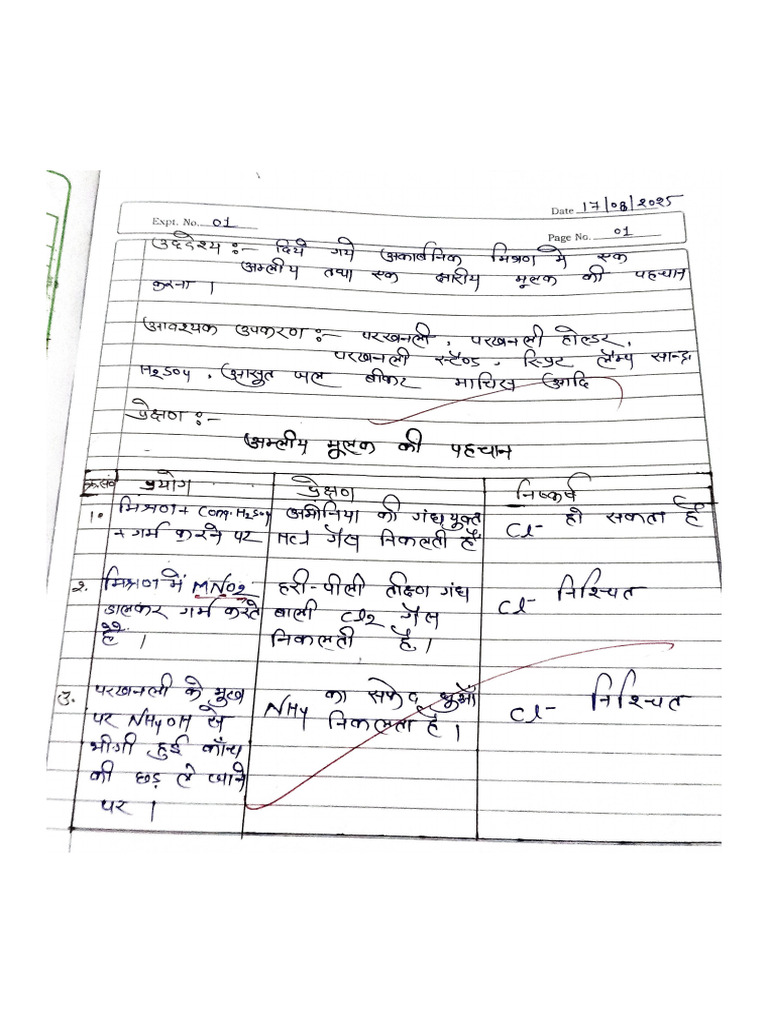 Date 17/08/2025
Expt. No. 01
Page No. 01
उद्देश्य :- दिये गये अकार्बनिक मिश्रण मे एक
अम्लीय तथा एक क्षारीय मूलक की पहचान
करना ।
आवश्यक उपकरण :- परखनली, परखनली होल्डर,
परखनली स्टैण्ड, स्प्रिट लैम्प सान्द्र
H2SO4, आसुत जल बीकर माचिस आदि
प्रेक्षण :-
अम्लीय मूलक की पहचान
क्र.सं प्रयोग प्रेक्षण निष्कर्ष
1. मिश्रण + Conq. H2SO4 अमोनिया की गंधयुक्त Cl- हो सकता है
+ गर्म करने पर HCl गैस निकलती है
2. मिश्रण में MNO2 हरी-पीली तीक्ष्ण गंध Cl- निश्चित
डालकर गर्म करते बाली Cl2 गैस
है । निकलती है।
3. परखनली के मुख NH4 का सफेद धुआँ Cl- निश्चित
पर NH4OH से निकलता है।
भीगी हुई काँच
की छड़ ले जाने
पर ।